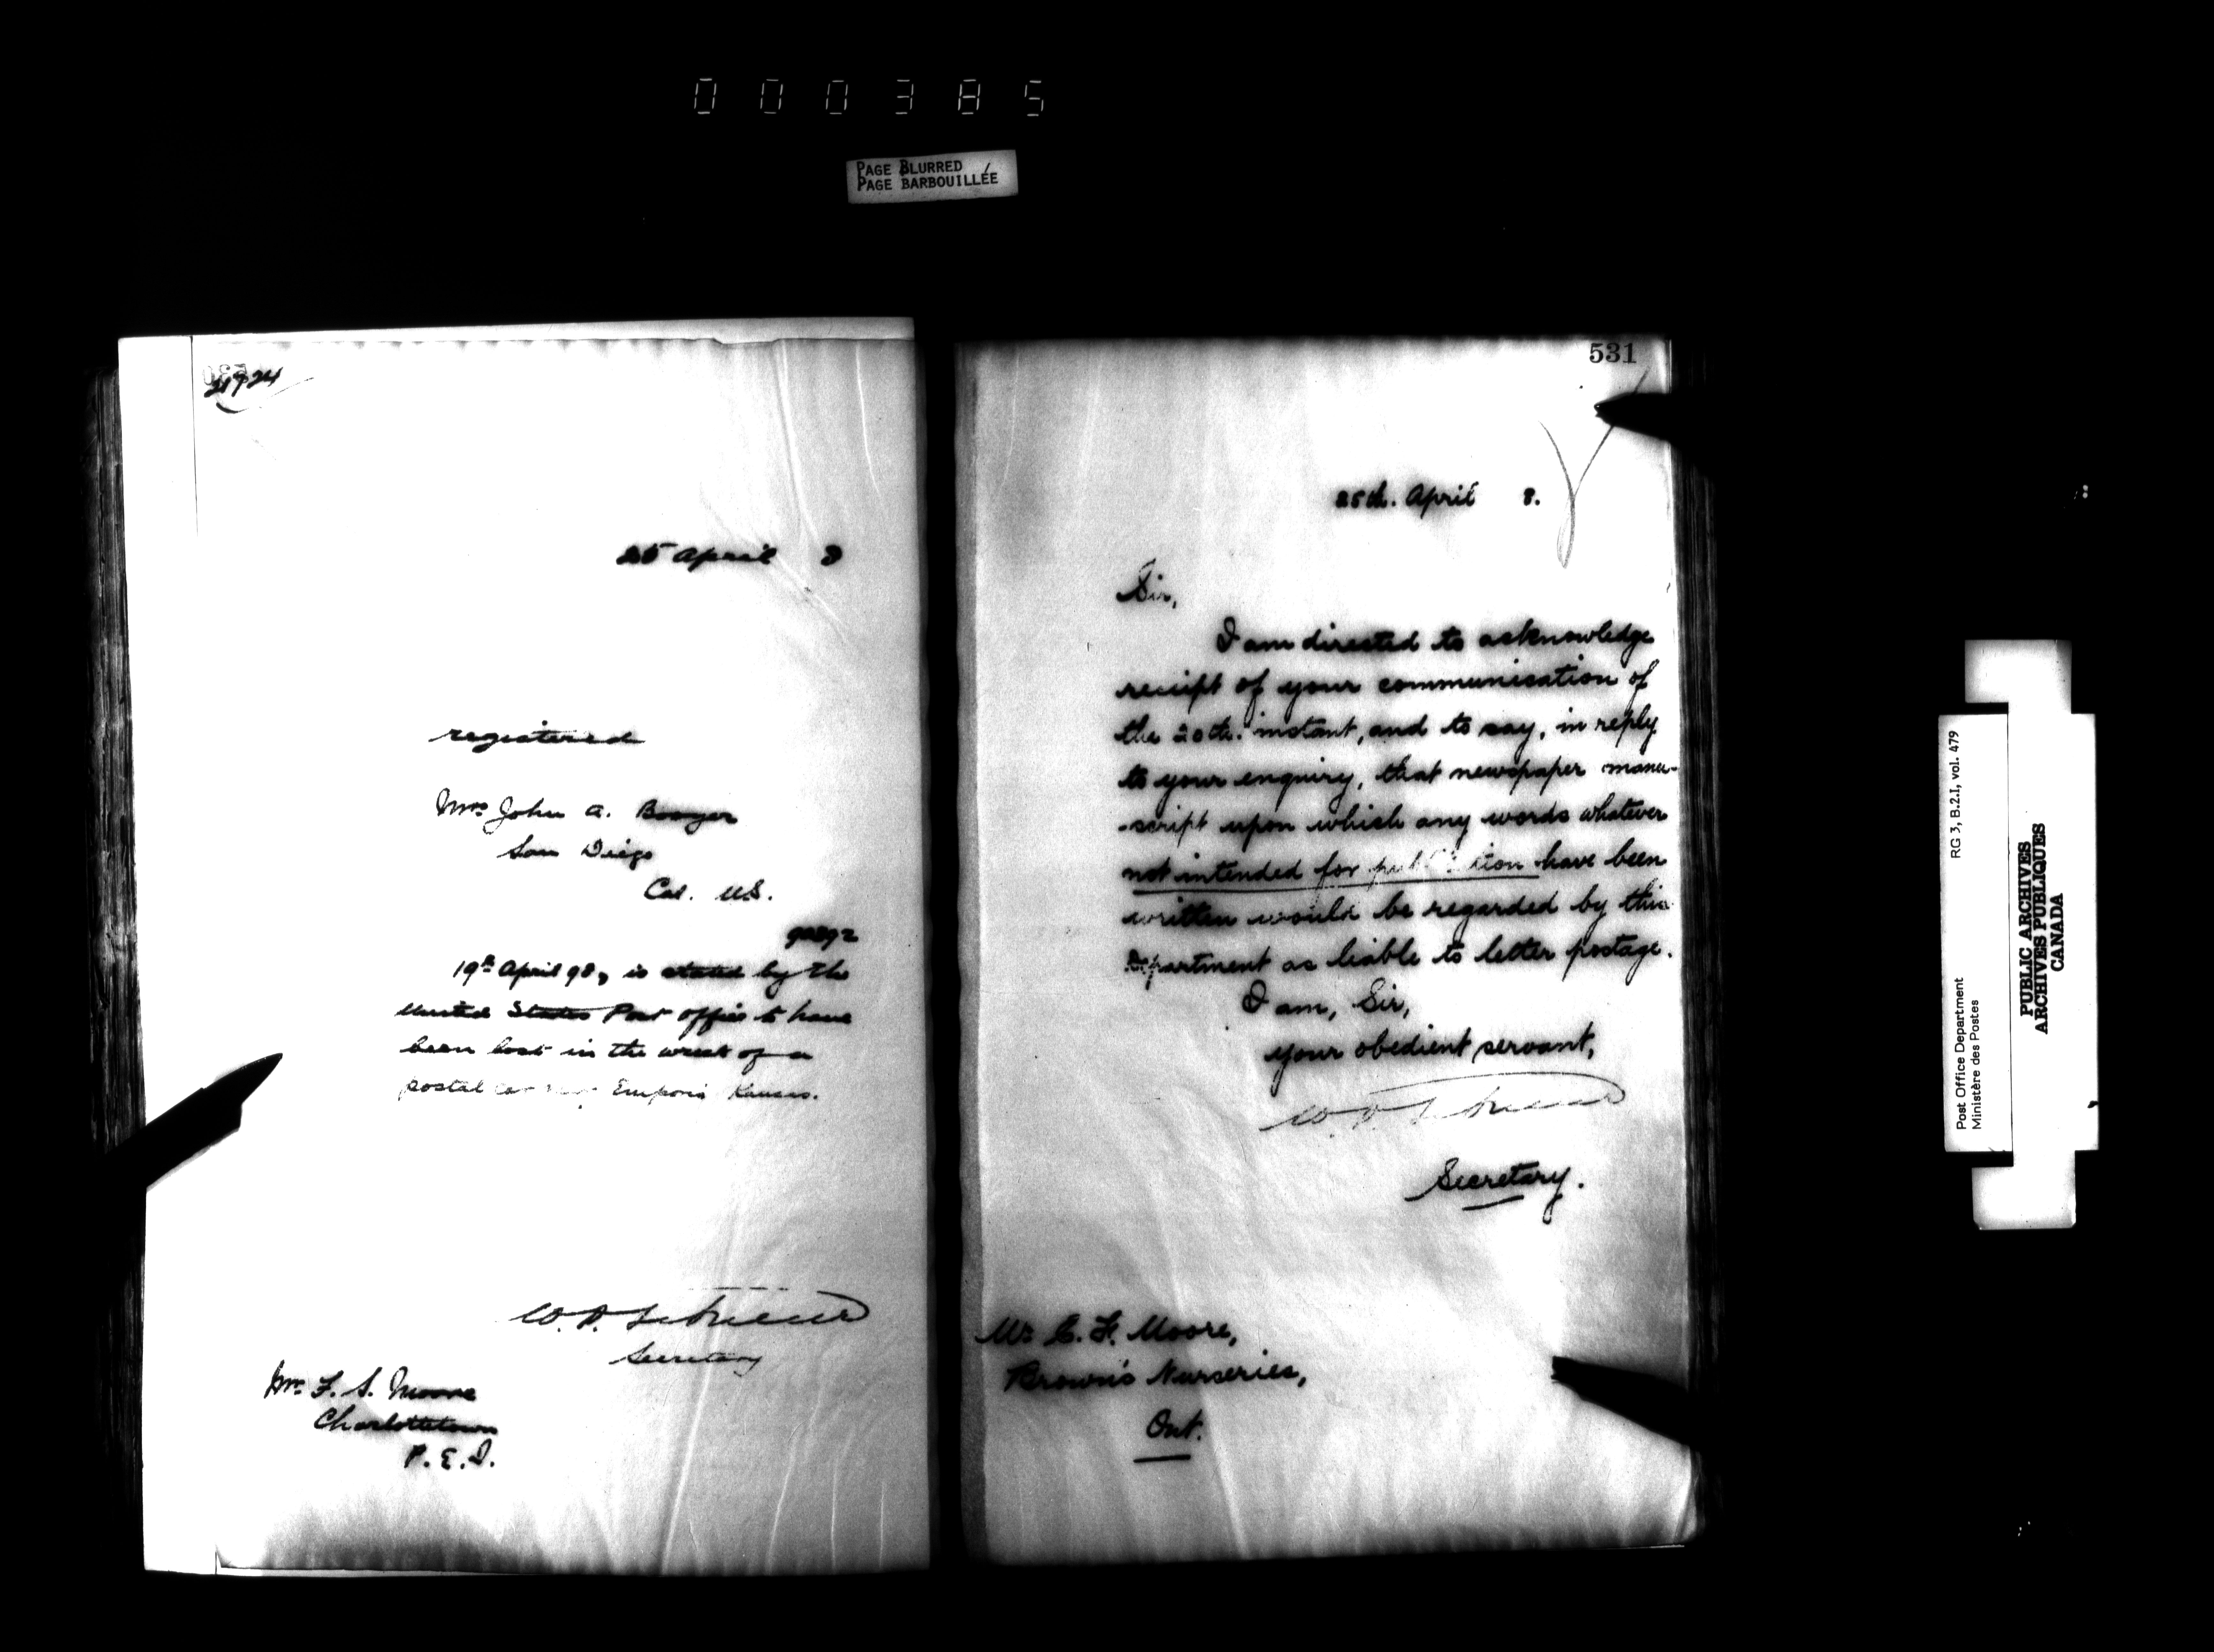 000385
PAGE BLURRED
PAGE BARBOUILLÉE
530
21724
25 April 8
registered
Mrs John A. Booyer
San Diego
Cal. U.S.
90892
19th April 98, is stated by the
United States Post office to have
been lost in the wreck of a
postal car near Emporia Kansas.
Secretary
Mr. F. S. Moore
Charlottetown
P. E. I.
531
25th. April 8.
Sir,
I am directed to acknowledge
receipt of your communication of
the 20th. instant, and to say, in reply
to your enquiry, that newspaper manu-
-script upon which any words whatever
not intended for publication have been
written would be regarded by this
Department as liable to letter postage.
I am, Sir,
your obedient servant,
Secretary.
Mr. C. F. Moore,
Brown's Nurseries,
Ont.
RG 3, B.2.I, vol. 479
Post Office Department
Ministère des Postes
PUBLIC ARCHIVES
ARCHIVES PUBLIQUES
CANADA